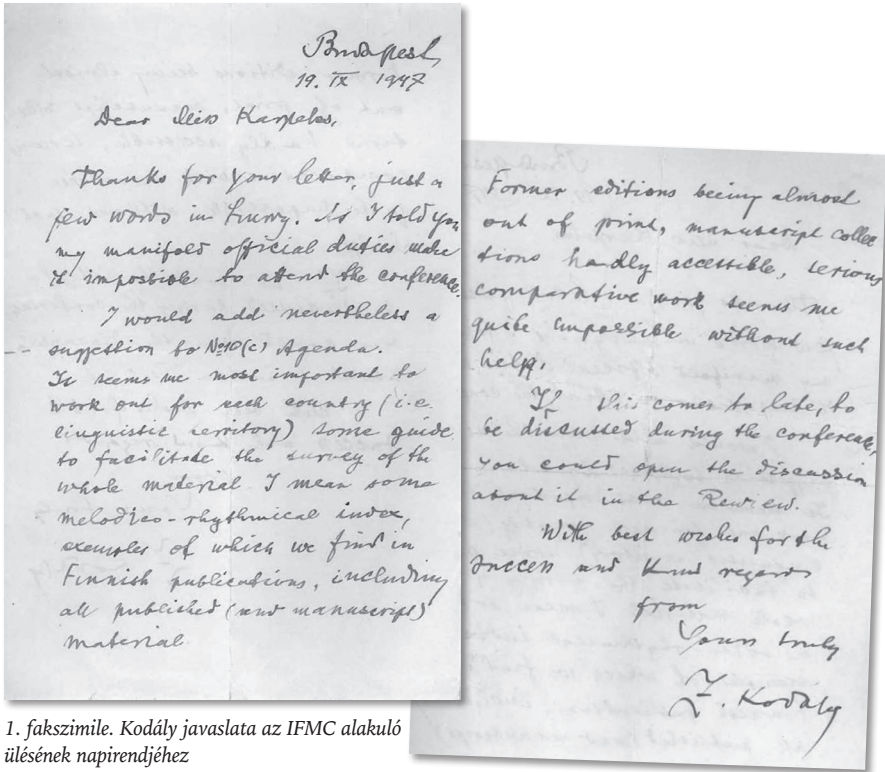 Budapest
19. IX 1947
Dear Miss Karpeles,
Thanks for your letter, just a
few words in hurry. As I told you
my manifold official duties make
it impossible to attend the conference.
I would add nevertheless a
suggestion to No10(c) Agenda.
It seems me most important to
work out for each country (i.e.
linguistic territory) some guide
to facilitate the survey of the
whole material. I mean some
melodico-rhythmical index,
exemples of which we find in
Finnish publications, including
all published (and manuscript)
material
Former editions being almost
out of print, manuscript collec
tions hardly accessible, serious
comparative work seems me
quite impossible without such
help.
If this comes to late, to
be discussed during the conference,
you could open the discussion
about it in the Rewiew.
With best wishes for the
success and kind regards
from
Yours truly
Z. Kodály
1. fakszimile. Kodály javaslata az IFMC alakuló
ülésének napirendjéhez